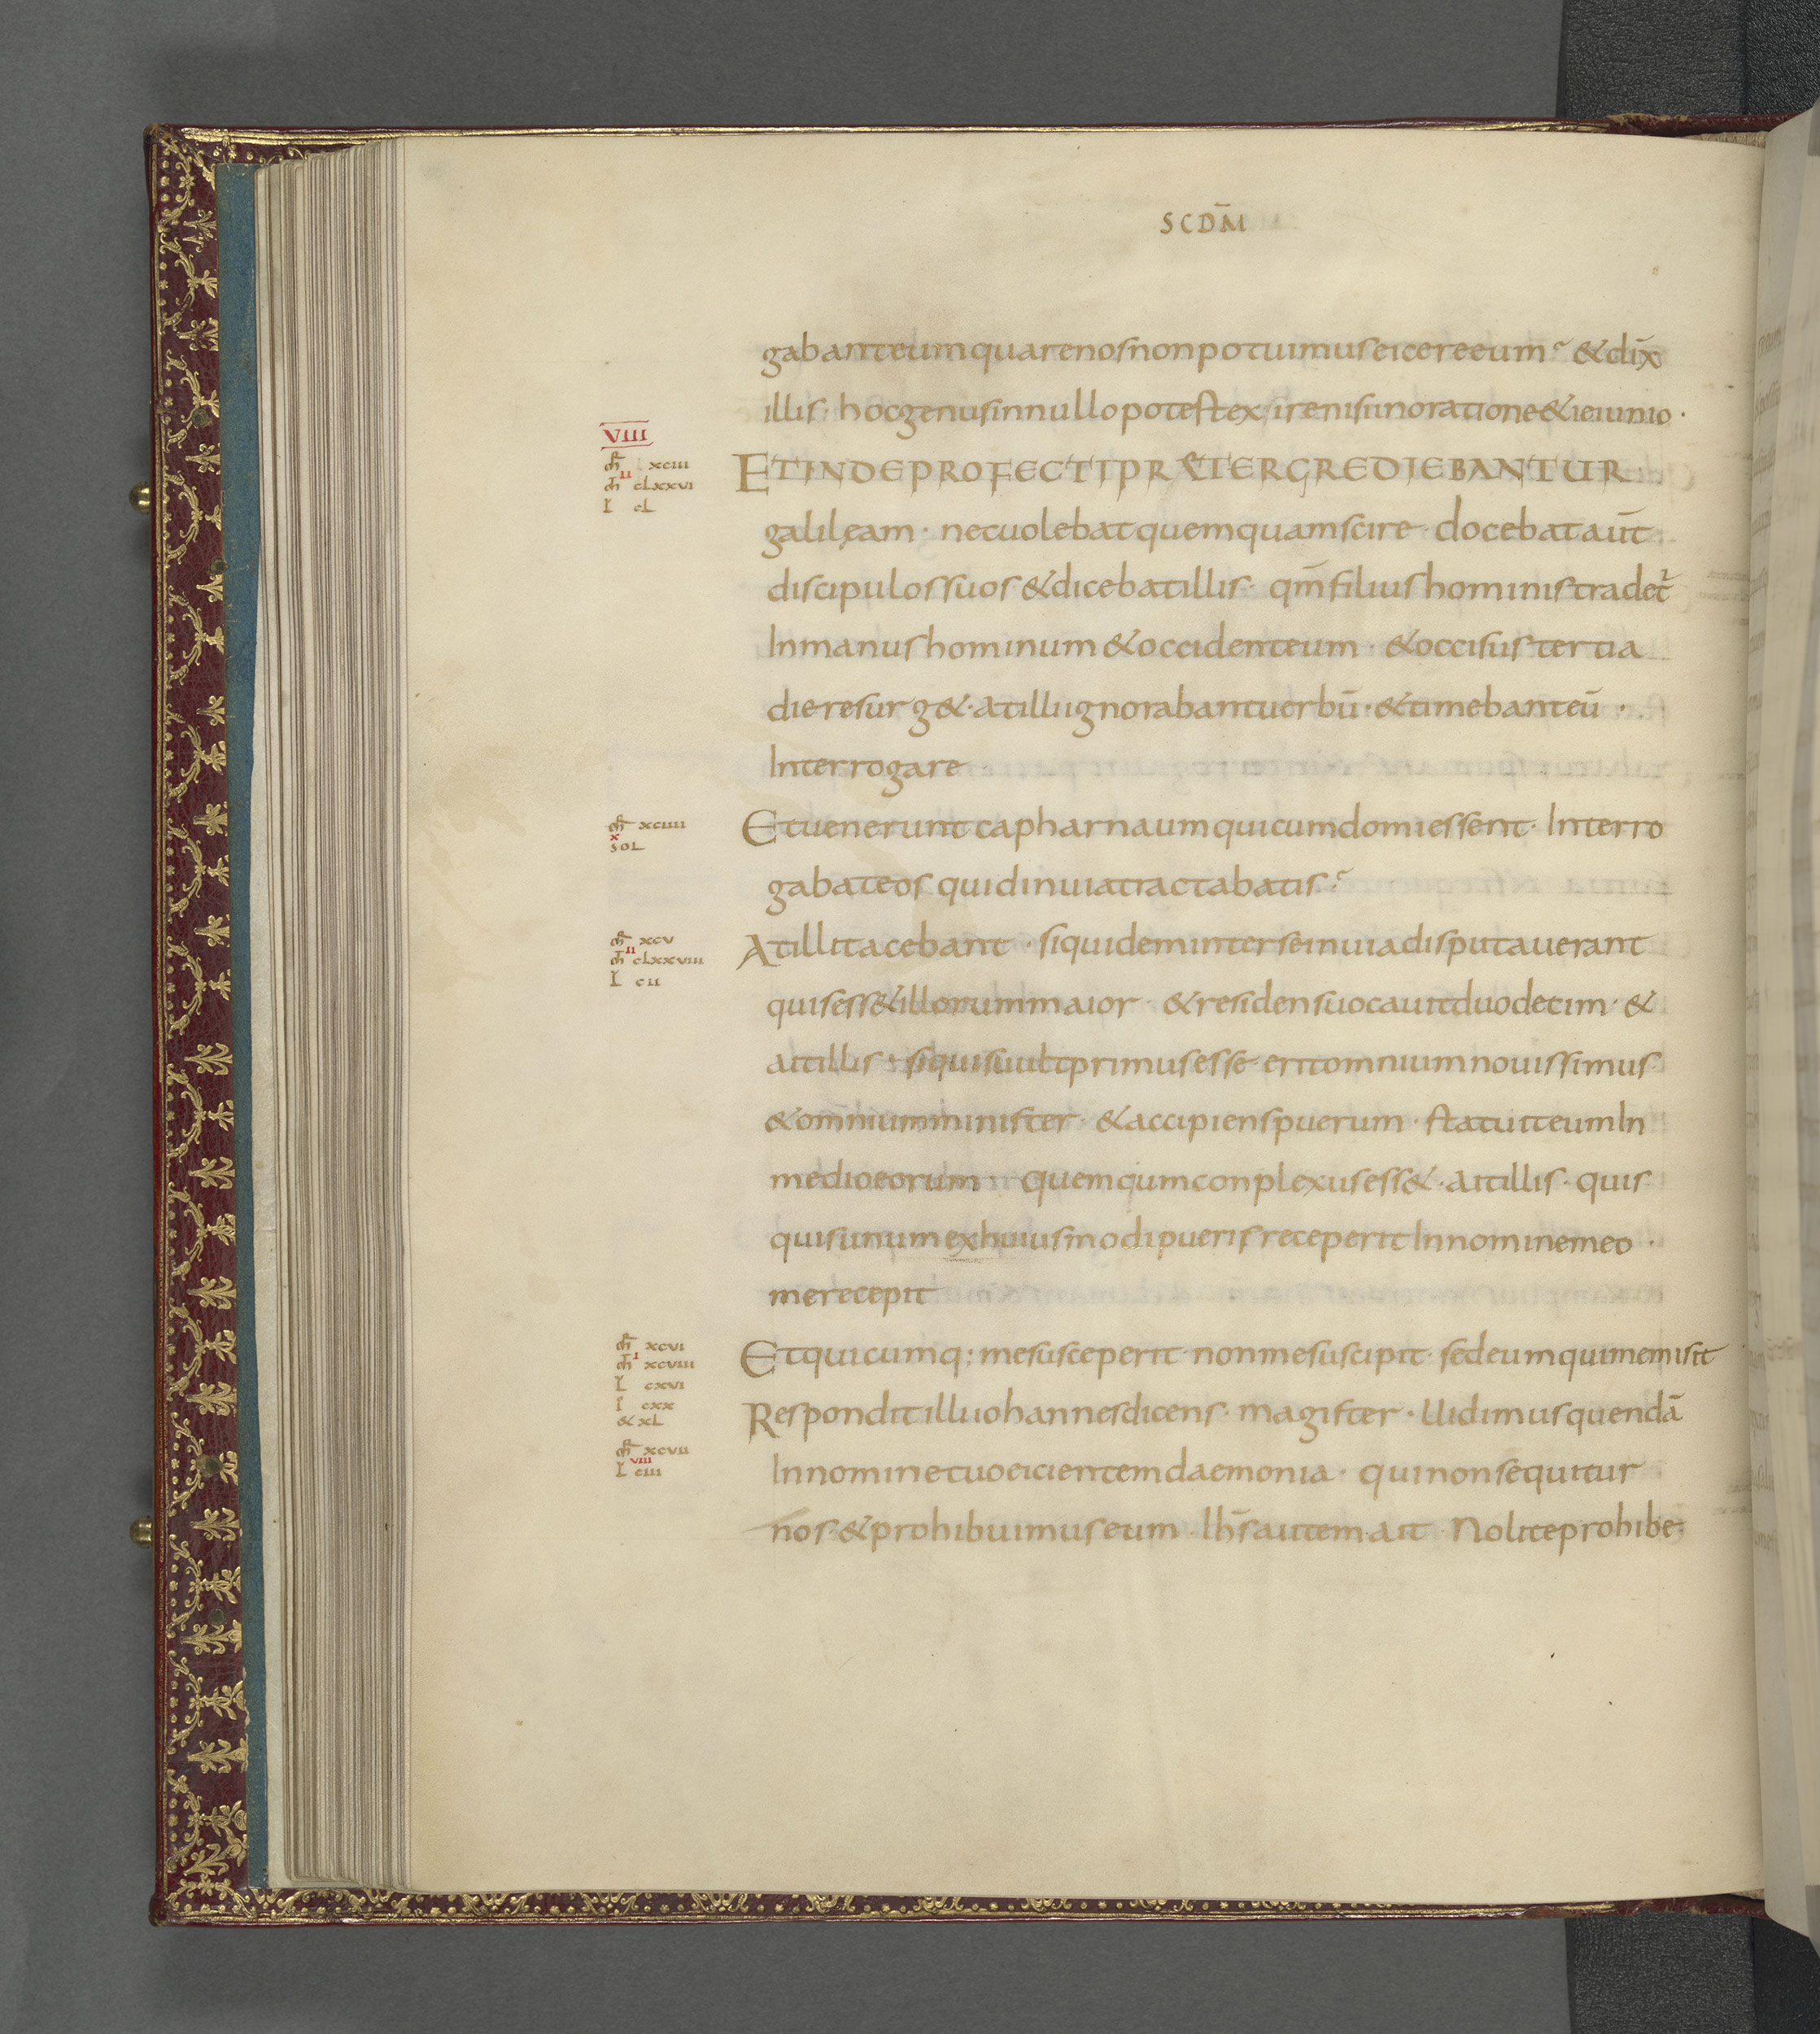 SCDM̄
gabant eum quare nos non potuimus eicere eum & dix̄
illis · hoc genus in nullo potest exire nisi in oratione & ieiunio ·
VIII
mr̄ xciii
mt̄ II clxxvi
l cl
ET INDE PROFECTI PRAETERGREDIEBANTUR
galilęam · nec uolebat quemquam scire · docebat aūt
discipulos suos & dicebat illis · qm̄ filius hominis tradet᷑
In manus hominum & occident eum · & occisus tertia
die resurg& · at illi ignorabant uerbū · & timebant eū ·
Interrogare
mr̄ xciiii
x
sol
Et uenerunt capharnaum qui cum domi essent · Interro
gabat eos quid in uia tractabatis
mr̄ xcv
mt̄ II clxxviii
l cii
At illi tacebant · siquidem inter se in uia disputauerant
quis ess& illorum maior · & residens uocauit duodecim · &
ait illis · si quis uult primus esse erit omnium nouissimus
& omnium minister · & accipiens puerum · statuit eum In
medio eorum quem cum conplexus ess& · ait illis · quis
quis unum ex huiusmodi pueris receperit In nomine meo ·
me recepit
mr̄ xcvi
mt̄ I xcviii
l cxvi
I cxx
& xl
Et quicumq; me susceperit non me suscipit sed eum qui me misit
Respondit illi iohannes dicens · magister · Uidimus quendā
mr̄ xcvii
l VIII ciii
In nomine tuo eicientem daemonia · qui non sequitur
nos · & prohibuimus eum · Ih̄s autem ait Nolite prohibe